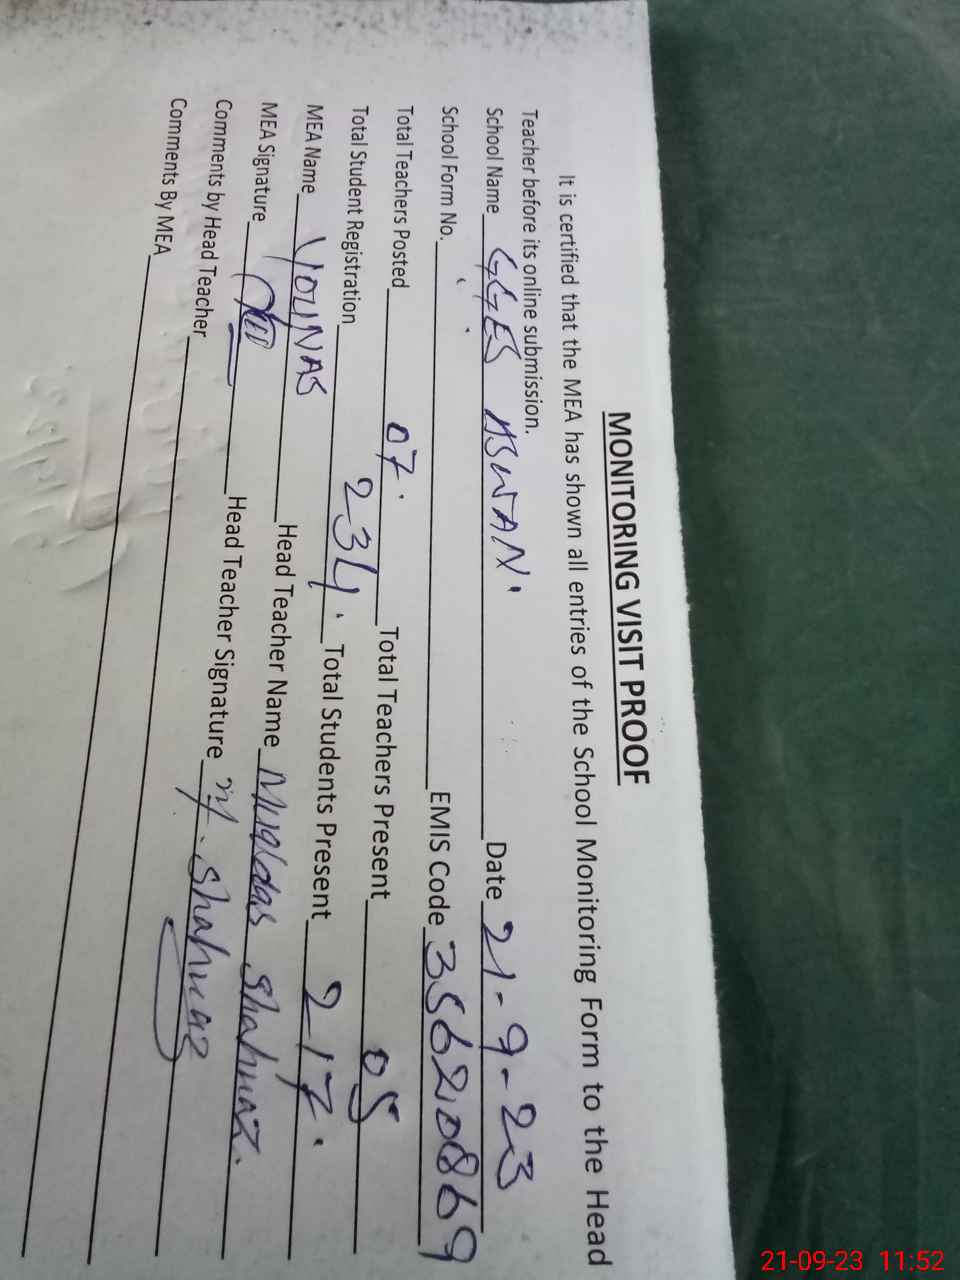 MONITORING VISIT PROOF
It is certified that the MEA has shown all entries of the School Monitoring Form to the Head
Teacher before its online submission.
School Name GGES ASWAN. Date 21-9-23
School Form No. EMIS Code 35620869
Total Teachers Posted 07. Total Teachers Present 05
Total Student Registration 234. Total Students Present 217.
MEA Name YOUNAS Head Teacher Name Muqdas Shahnaz.
MEA Signature Head Teacher Signature M. Shahnaz
Comments by Head Teacher
Comments By MEA
21-09-23 11:52